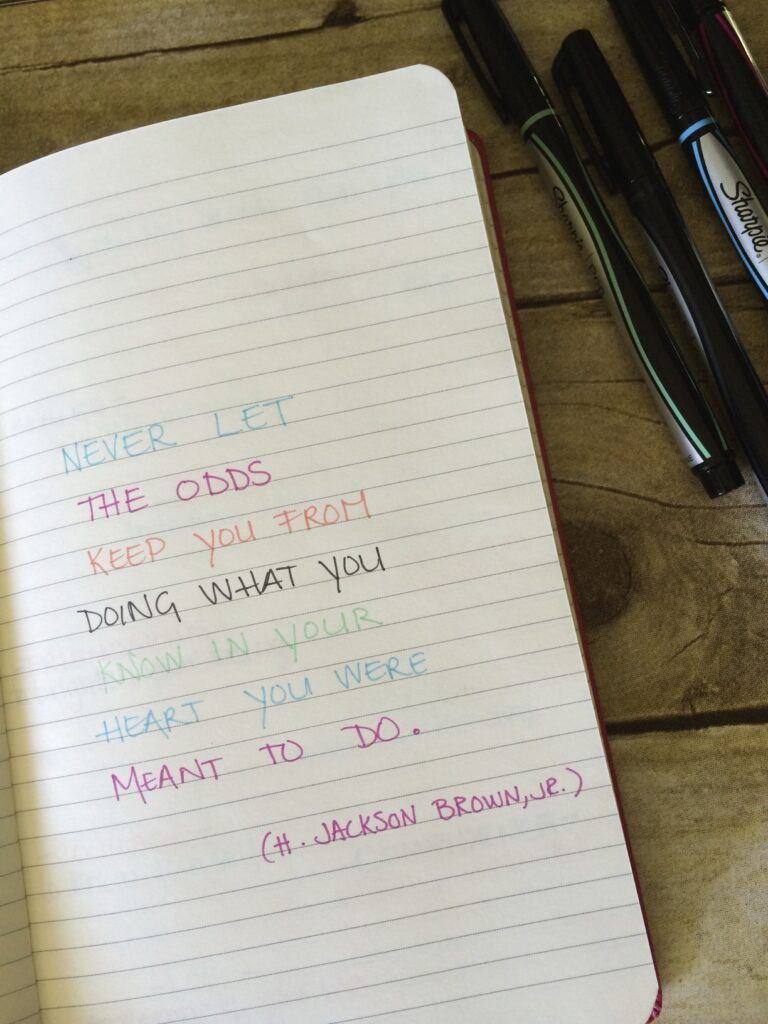 NEVER LET
THE ODDS
KEEP YOU FROM
DOING WHAT YOU
KNOW IN YOUR
HEART YOU WERE
MEANT TO DO.
(H. JACKSON BROWN, JR.)
Sharpie
Sharpie